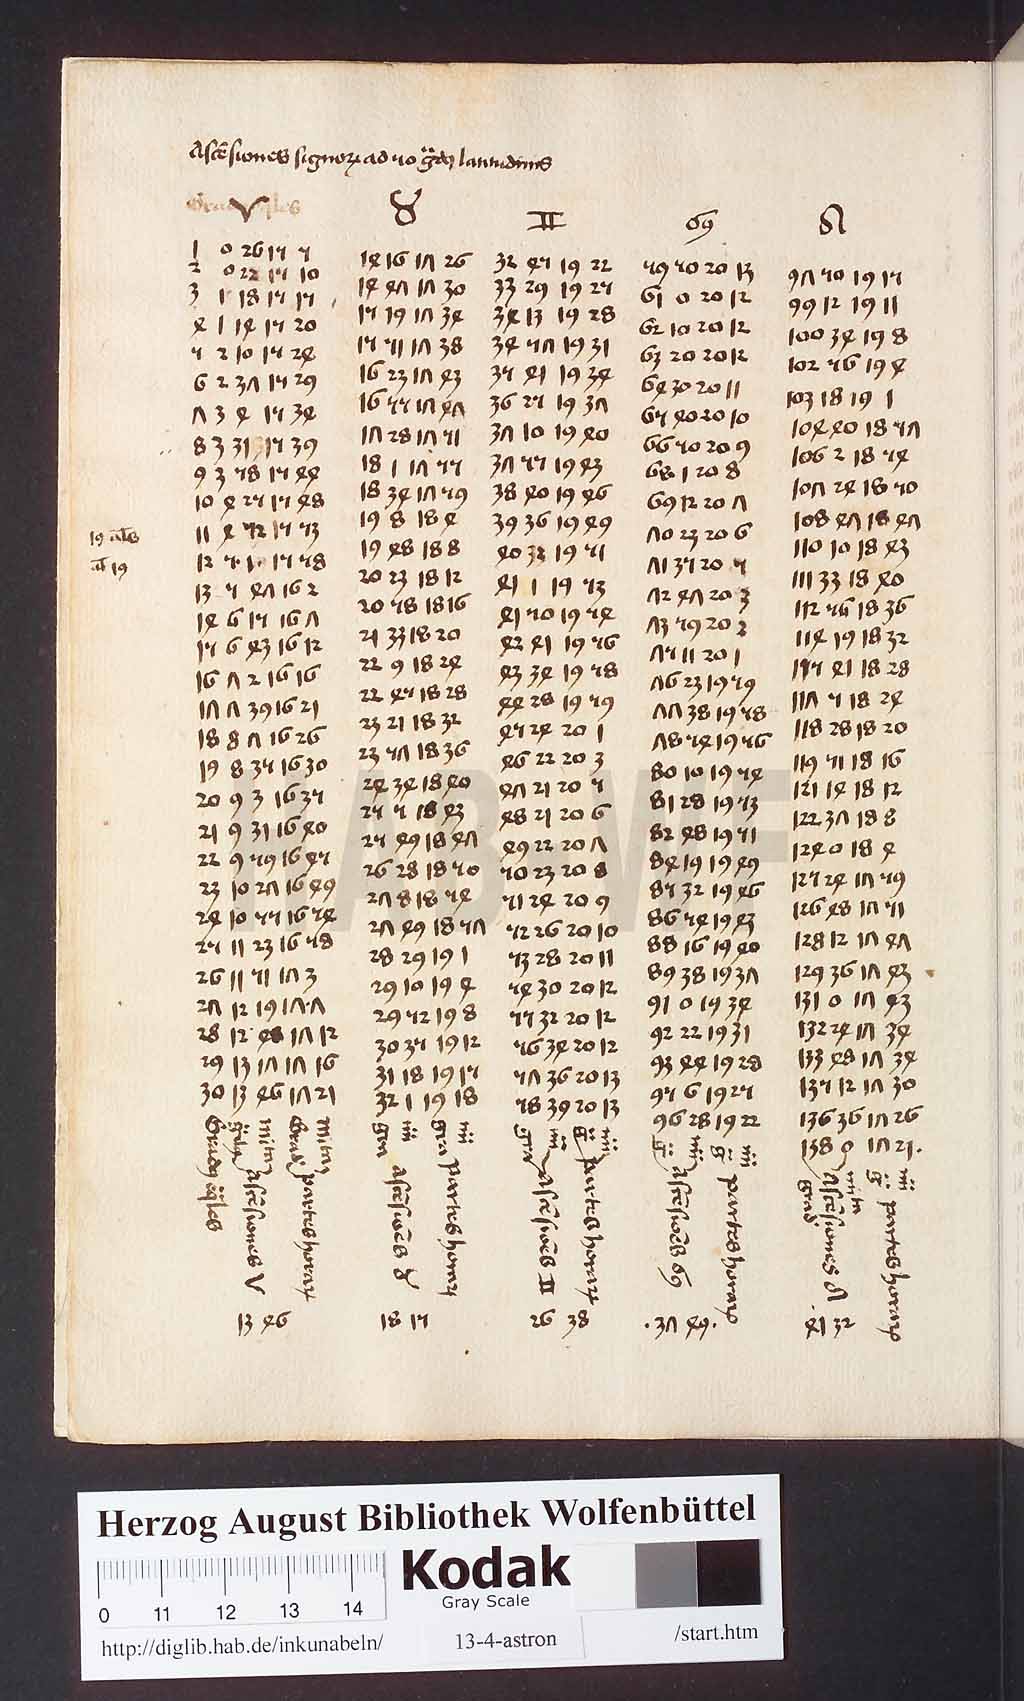 Ascēsiones signoꝝ ad 50 gͣdꝫ latitudinis
♈ ♉ ♊ ♋ ♌
1 0 26 15 5 14 16 17 26 32 45 19 22 59 50 20 13 97 50 19 15
2 0 22 15 10 14 47 17 30 33 29 19 25 61 0 20 12 99 12 19 11
3 1 18 15 15 15 19 17 34 34 13 19 28 62 10 20 12 100 34 19 8
4 1 14 15 20 15 51 17 38 34 57 19 31 63 20 20 12 102 56 19 4
5 2 10 15 24 16 23 17 43 35 41 19 34 64 30 20 11 103 18 19 1
6 2 37 15 29 16 55 17 47 36 25 19 37 65 40 20 10 104 40 18 57
7 3 4 15 34 17 28 17 51 37 10 19 40 66 50 20 9 106 2 18 54
8 3 31 15 39 18 1 17 55 37 55 19 43 68 1 20 8 107 24 18 50
9 3 58 15 44 18 34 17 59 38 40 19 46 69 12 20 7 108 47 18 47
10 4 25 15 48 19 8 18 4 39 36 19 49 70 23 20 6 110 10 18 43
11 4 52 15 53 19 48 18 8 40 32 19 51 71 35 20 5 111 33 18 40
12 5 15 58 20 23 18 12 41 1 19 53 72 47 20 3 112 56 18 36
13 5 47 16 2 20 58 18 16 41 50 19 54 73 59 20 2 114 19 18 32
14 6 15 16 7 21 33 18 20 42 41 19 56 75 11 20 1 115 41 18 28
15 6 43 16 12 22 9 18 24 43 34 19 58 76 23 19 59 117 5 18 24
16 7 2 16 16 22 45 18 28 44 28 19 59 77 38 19 58 118 28 18 20
17 7 39 16 21 23 21 18 32 45 24 20 1 78 54 19 56 119 51 18 16
18 8 7 16 26 23 57 18 36 46 22 20 3 80 10 19 54 121 14 18 12
19 8 35 16 30 24 34 18 40 47 21 20 5 81 28 19 53 122 37 18 8
20 9 3 16 35 25 5 18 43 48 21 20 6 82 48 19 51 124 0 18 4
21 9 31 16 40 25 49 18 47 49 22 20 7 84 19 19 49 125 24 17 59
22 9 59 16 45 26 28 18 50 50 23 20 8 85 32 19 46 126 48 17 51
23 10 27 16 49 27 8 18 54 51 24 20 9 86 54 19 43 128 12 17 47
24 10 55 16 54 27 49 18 57 52 26 20 10 88 16 19 40 129 36 17 43
25 11 23 16 58 28 29 19 1 53 28 20 11 89 38 19 37 131 0 17 43
26 11 51 17 3 29 10 19 4 54 30 20 12 91 0 19 34 132 24 17 34
27 12 19 17 7 29 52 19 8 55 32 20 12 92 22 19 31 133 48 17 34
28 12 48 17 12 30 35 19 12 56 34 20 12 93 44 19 28 135 12 17 30
29 13 17 17 16 31 18 19 15 57 36 20 13 95 6 19 25 136 36 17 26
30 13 46 17 21 32 1 19 18 58 39 20 13 96 28 19 22 138 0 17 21.
Ascēsiones ♈ partes horaꝝ
ascēsiōēs ♉ partes horaꝝ
Ascēsiōēs ♊ partes horaꝝ
ascēsiōēs ♋ partes horaꝝ
Ascēsiones ♌ partes horaꝝ
13 46 18 15 26 38 .37 49. 41 32
Herzog August Bibliothek Wolfenbüttel
Kodak
Gray Scale
0 11 12 13 14
http://diglib.hab.de/inkunabeln/ 13-4-astron /start.htm